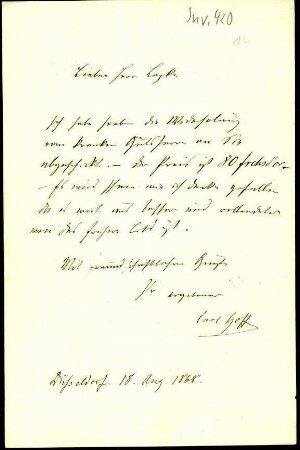 Inv. 420
Lieber Herr Lepke
Ich habe soeben die Wiederholung
vom kranken Gutsherrn an Sie
abgeschickt. – Der Preis ist 80 Frchsdor –
– Es wird Ihnen wie ich denke gefallen
da es weit und besser und vollendeter
wie das frühere Bild ist.
Mit freundschaftlichem Gruß
Ihr ergebener
Carl Hoff
Düsseldorf 18. Aug. 1868.